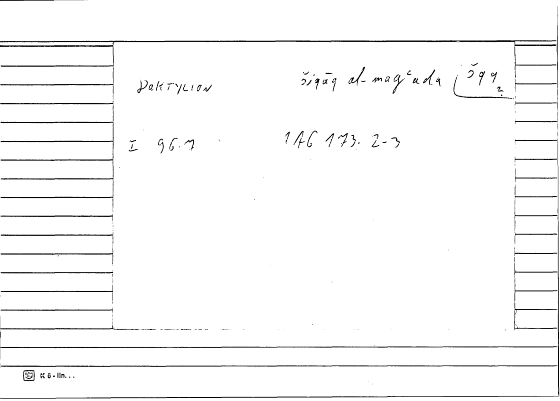 DAKTYLION šiqāq al-maqʿada šqq
I 96.7 IAG 173. 2-3